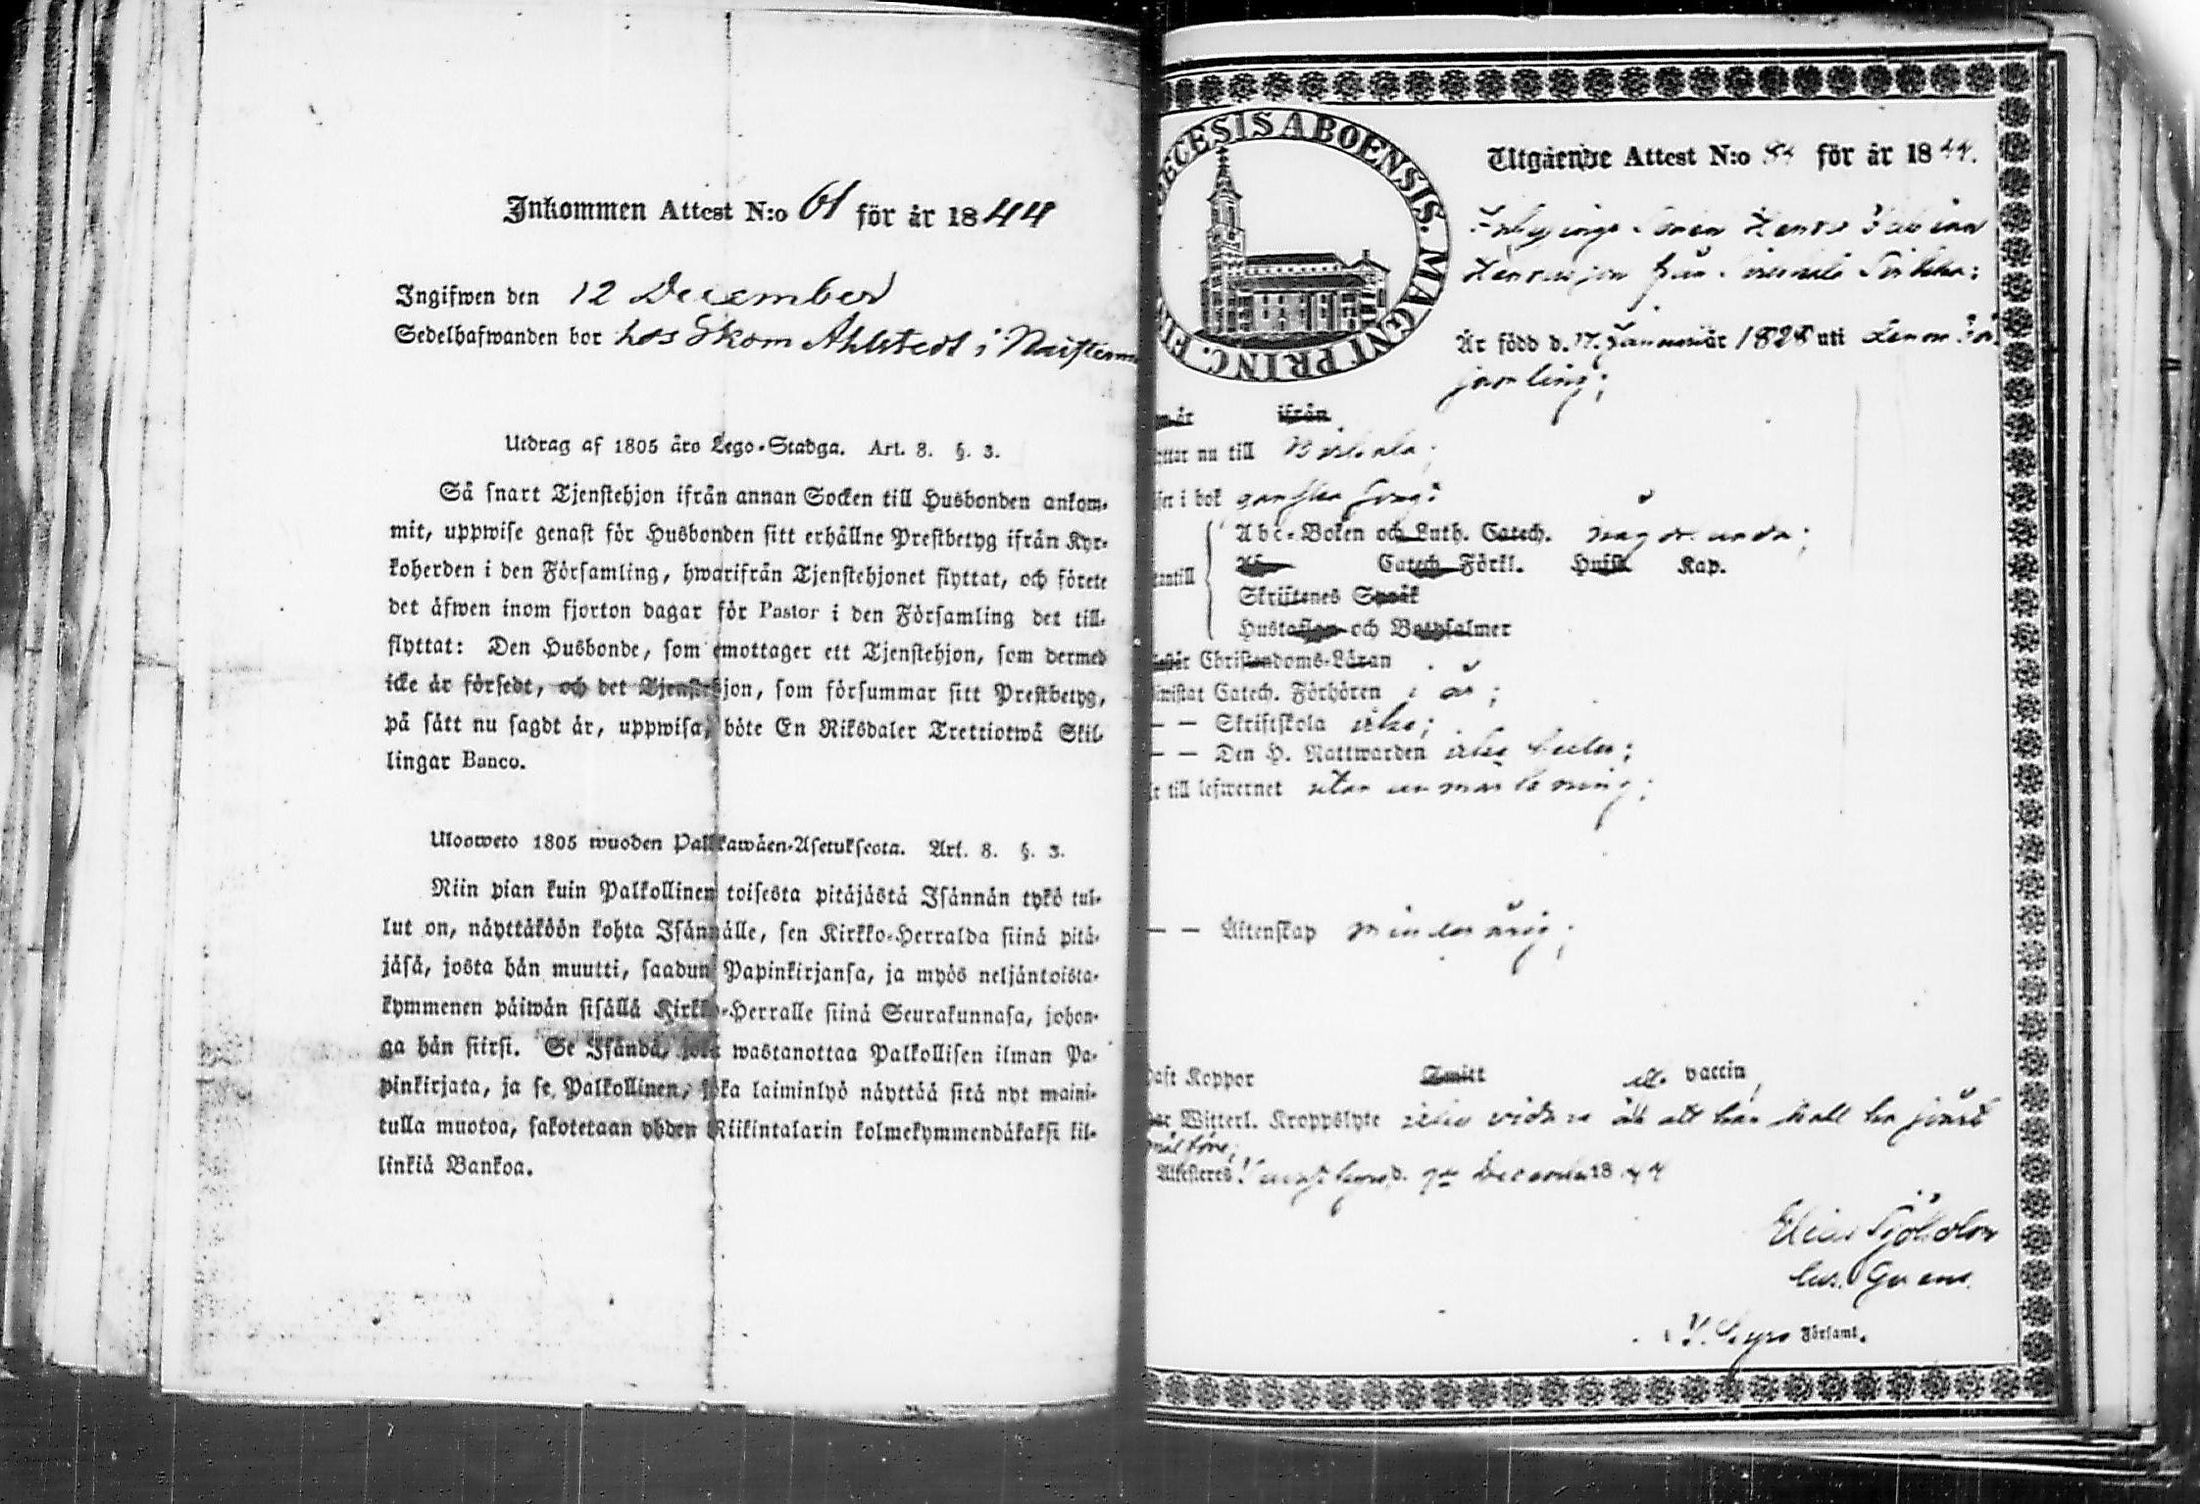 Inkommen Attest N:o 61 för år 1844
Ingifwen den 12 December
Sedelhafwanden bor hos Skom Ahlstedt i
Utdrag af 1805 års Lego-Stadga. Art. 8. §. 3.
Så snart Tjenstehjon ifrån annan Socken till Husbonden ankom-
mit, uppwise genast för Husbonden sitt erhållne Prestbetyg ifrån Kyr-
koherden i den Församling, hwarifrån Tjenstehjonet flyttat, och förete
det äfwen inom fjorton dagar för Pastor i den Församling det till-
flyttat: Den Husbonde, som emottager ett Tjenstehjon, som dermed
icke är försedt, och det Tjenstehjon, som försummar sitt Prestbetyg,
på sätt nu sagdt är, uppwisa, böte En Riksdaler Trettiotwå Skil-
lingar Banco.
Ulosweto 1805 wuoden Palkkawäen-Asetuksesta. Art. 8. §. 3.
Niin pian kuin Palkollinen toisesta pitäjästä Isännän tykö tul-
lut on, näyttäköön kohta Isännälle, sen Kirkko-Herralda siinä pitä-
jäsä, josta hän muutti, saadun Papinkirjansa, ja myös neljäntoista-
kymmenen päiwän sisällä Kirkko-Herralle siinä Seurakunnasa, johon-
ga hän siirsi. Se Isändä, joka wastanottaa Palkollisen ilman Pa-
pinkirjata, ja se Palkollinen, joka laiminlyö näyttää sitä nyt maini-
tulla muotoa, sakotetaan yhden Riikintalarin kolmekymmendäkaksi kil-
linkiä Bankoa.
ECESIS ABOENSIS. MAGNI PRINC. FI
Utgående Attest N:o för år 1844.
Henrik Fabian
Henriksson från
Är född d. 17. Januari år 1828 uti Lemo För
samling;
år ifrån
ttar nu till
ser i bok ganska svagt
Abc-Boken och Luth. Catech. någorlunda;
Catech Förkl. Husst. Kap.
antill
Skriftenes Språk
Hustaflan och Botpsalmer
står Christendoms-Läran
biwistat Catech. Förhören i år;
— — Skriftskola icke;
— — Den H. Nattwarden icke heller;
r till lefwernet utan anmärkning;
— — Äktenskap minderårig;
haft Koppor Smitt vaccin,
Witterl. Kroppslyte icke vidare än att han skall ha
Attesteres d. 7de December 1844
Elias Sjöholm
Församl.